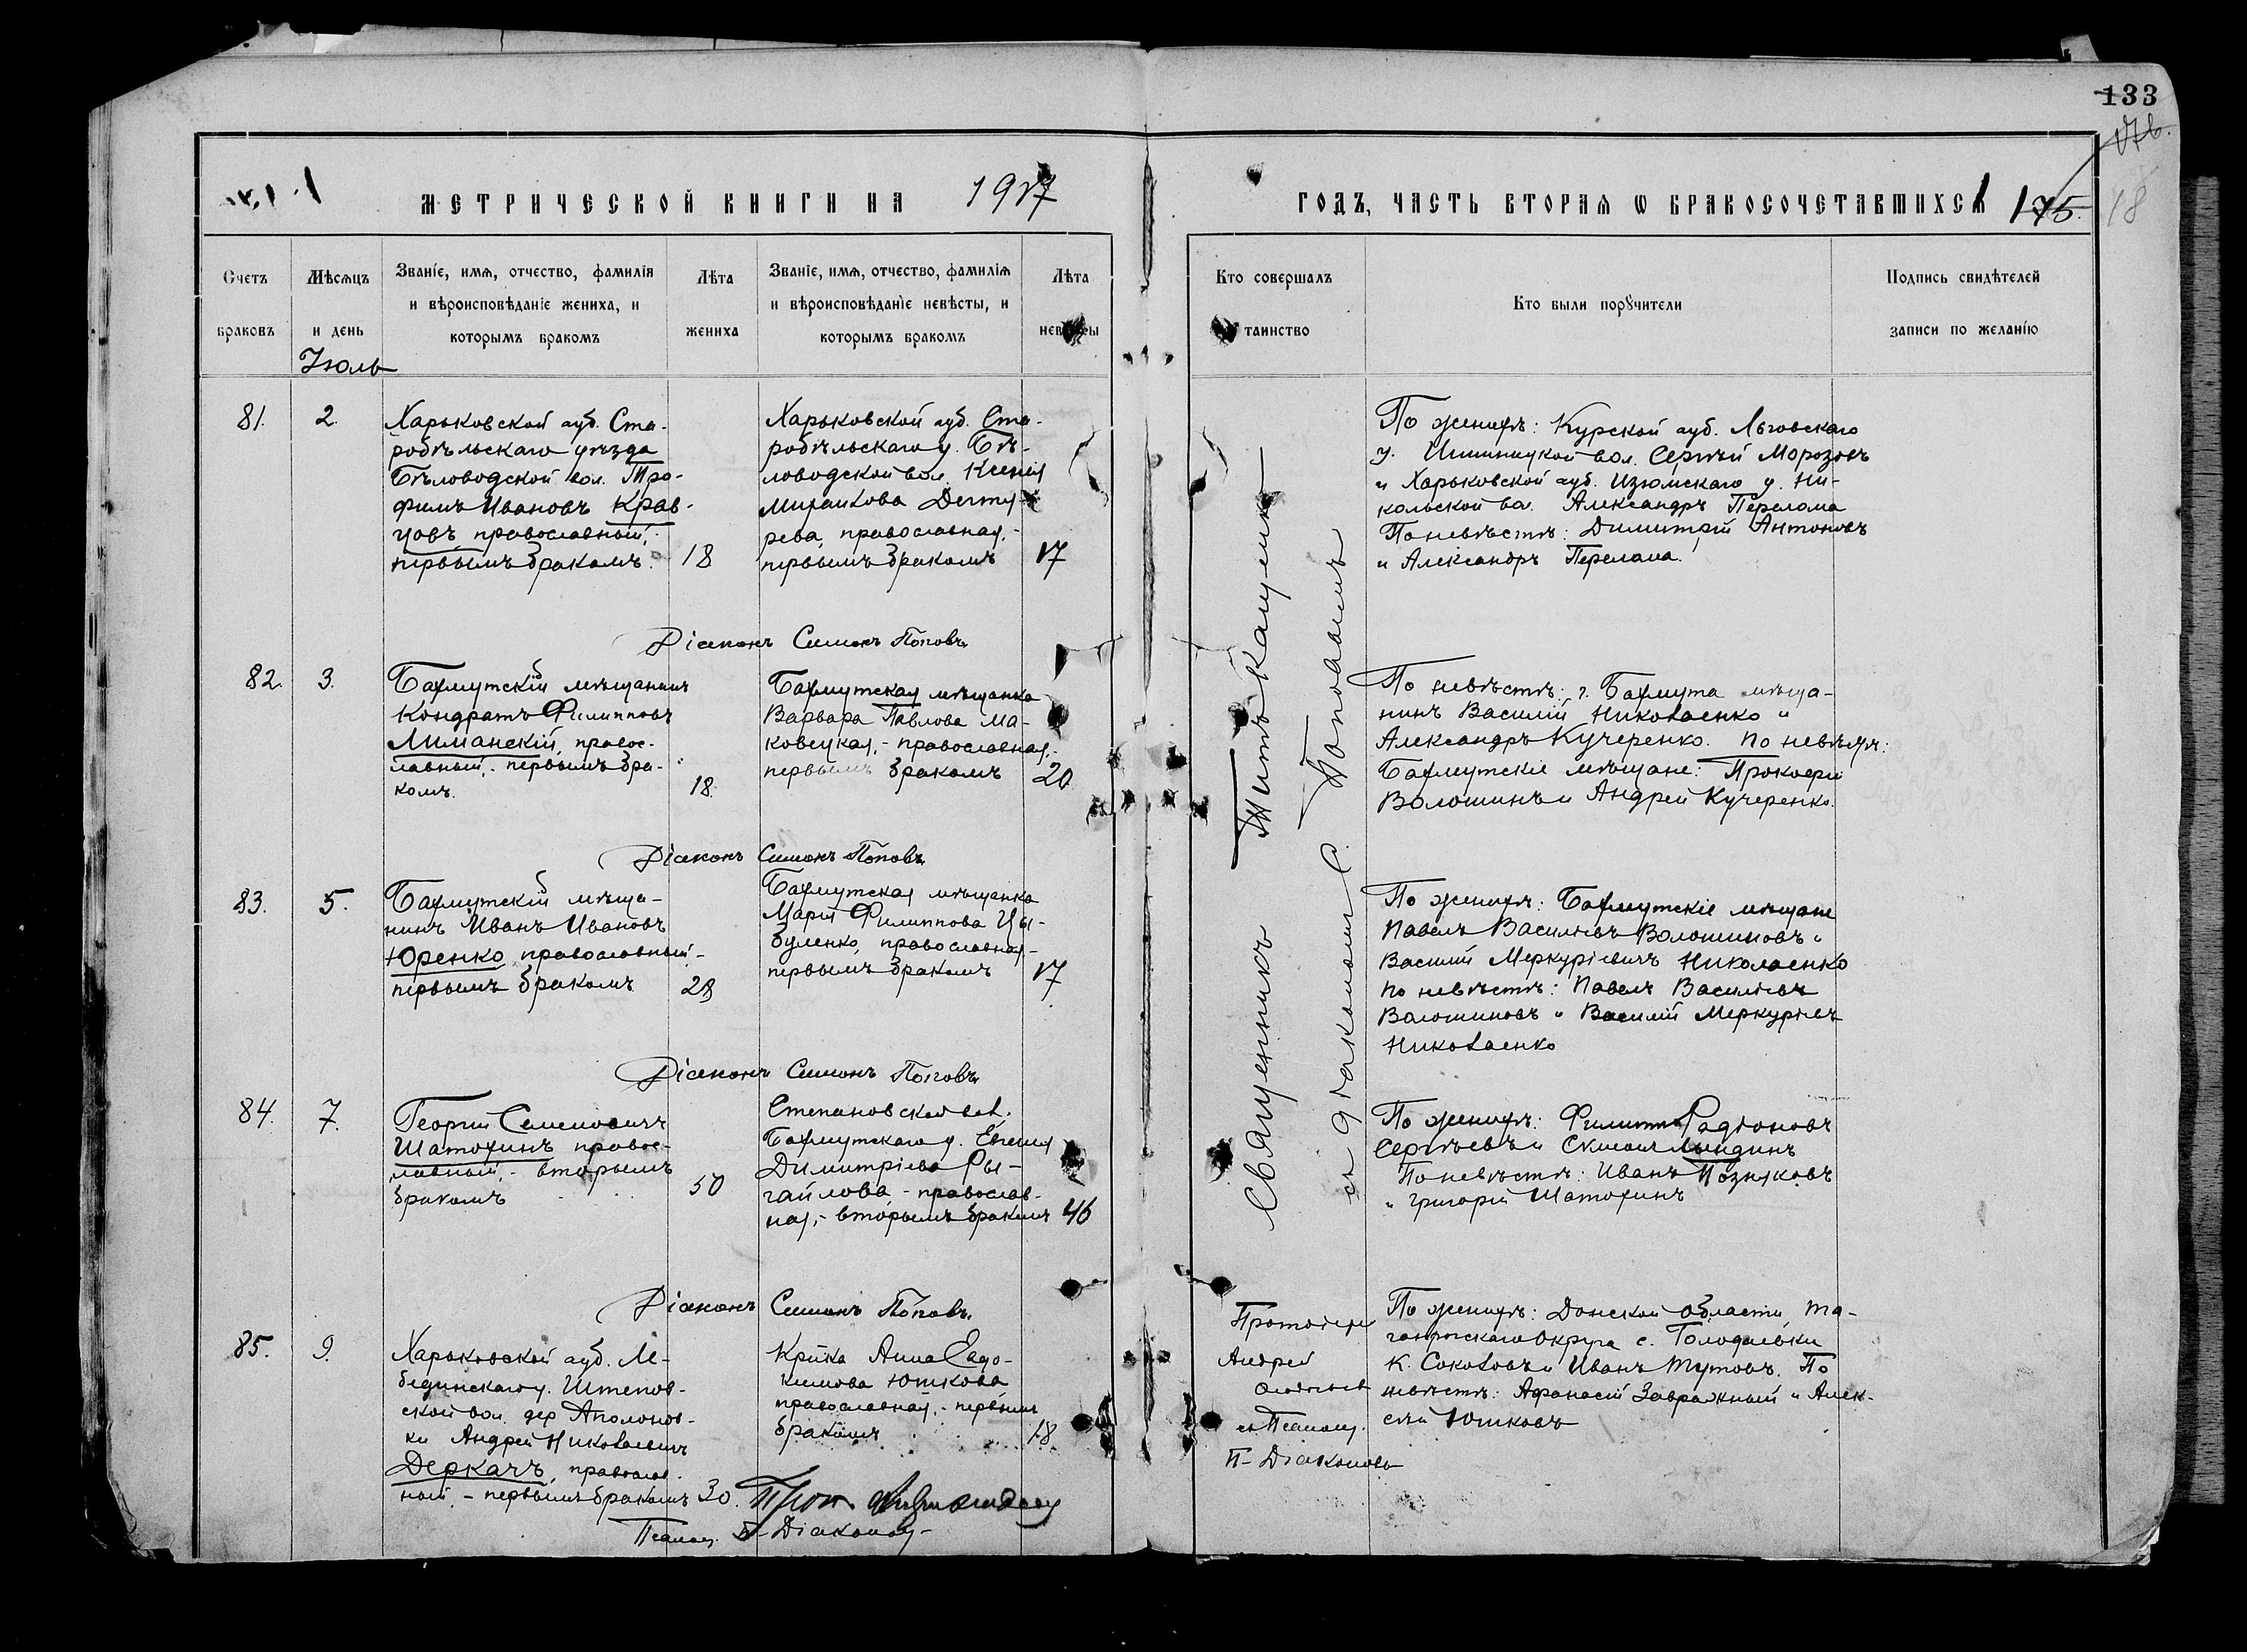 133
МЕТРИЧЕСКОЙ КНИГИ НА 1917
ГОДЪ, ЧАСТЬ ВТОРАЯ Ѡ БРАКОСОЧЕТАВШИХСЯ 175.
18
Счетъ браковъ
Мѣсяцъ и день
Званіе, имя, отчество, фамилія и вѣроисповѣданіе жениха, и которымъ бракомъ
Лѣта жениха
Званіе, имя, отчество, фамилія и вѣроисповѣданіе невѣсты, и которымъ бракомъ
Лѣта невѣсты
Кто совершалъ таинство
Кто были порꙋчители
Подпись свидѣтелей записи по желанію
Іюль
81.
2.
Харьковской губ. Ста-
робѣльскаго уѣзда
Бѣловодской вол. Тро-
фимъ Ивановъ Крав-
цовъ, православный,
первымъ бракомъ.
18
Харьковской губ. Ста-
робѣльскаго у. Бѣ-
ловодской вол. Ксенія
православная,
первымъ бракомъ
17
По женихѣ: Курской губ. Льговскаго
у. вол. Сергѣй Морозовъ
и Харьковской губ. Изюмскаго у. Ни-
кольской вол. Александръ Перелома
По невѣстѣ: Димитрій Антоновъ
и Александръ Перелома.
Діаконъ Симонъ Поповъ
82.
3.
Бахмутскій мѣщанинъ
Кондратъ Филипповъ
Лиманскій, правос-
лавный, - первымъ бра-
комъ.
18.
Бахмутская мѣщанка
Варвара Павлова Ма-
ковецкая, - православная,-
первымъ бракомъ
20
По невѣстѣ: г. Бахмута мѣща-
нинъ Василій Николаенко и
Александръ Кучеренко. По невѣстѣ:
Бахмутскіе мѣщане: Прокофій
Волошинъ и Андрей Кучеренко.
Діаконъ Симонъ Поповъ
83.
5.
Бахмутскій мѣща-
нинъ Иванъ Ивановъ
Юренко, православный -
первымъ бракомъ
28
Бахмутская мѣщанка
Марія Филиппова Цы-
буленко, православная -
первымъ бракомъ
17
По женихѣ: Бахмутскіе мѣщане
Павелъ Васильевъ Волошиновъ и
Василій Меркуріевичъ Николаенко
По невѣстѣ: Павелъ Васильевъ
Волошиновъ и Василій Меркурьевъ
Николаенко
Діаконъ Симонъ Поповъ
84.
7.
Георгій Семеновичъ
Шатохинъ, правос-
лавный, - вторымъ
бракомъ
50
Степановской вол.
Бахмутскаго у. Евгенія
Димитріева Ры-
гайлова, - православ-
ная, - вторымъ бракомъ
46
По женихѣ: Филиппъ Радіоновъ
Сергѣевъ и
По невѣстѣ: Иванъ Позняковъ
и Григорій Шатохинъ
Священникъ Титъ
съ діакономъ С. Поповымъ
Діаконъ Симонъ Поповъ.
85.
9.
Харьковской губ. Ле-
бединскаго у. Штепов-
ской вол. дер. Аполонов-
ки Андрей Николаевичъ
Деркачъ, православ-
ный, - первымъ бракомъ
30.
Кр-нка Анна Евдо-
кимова Юшкова
православная, - первымъ
бракомъ
18
Протоіерей
Андрей
съ Псаломщ.
П. Діаконовъ
По женихѣ: Донской области, Та-
ганрогскаго Округа с. Голодаевки
К. Соколовъ и Иванъ Тутовъ. По
невѣстѣ: Афанасій Завражный и Алек-
сѣй Юшковъ
Прот.
Псалом. П. Діаконовъ